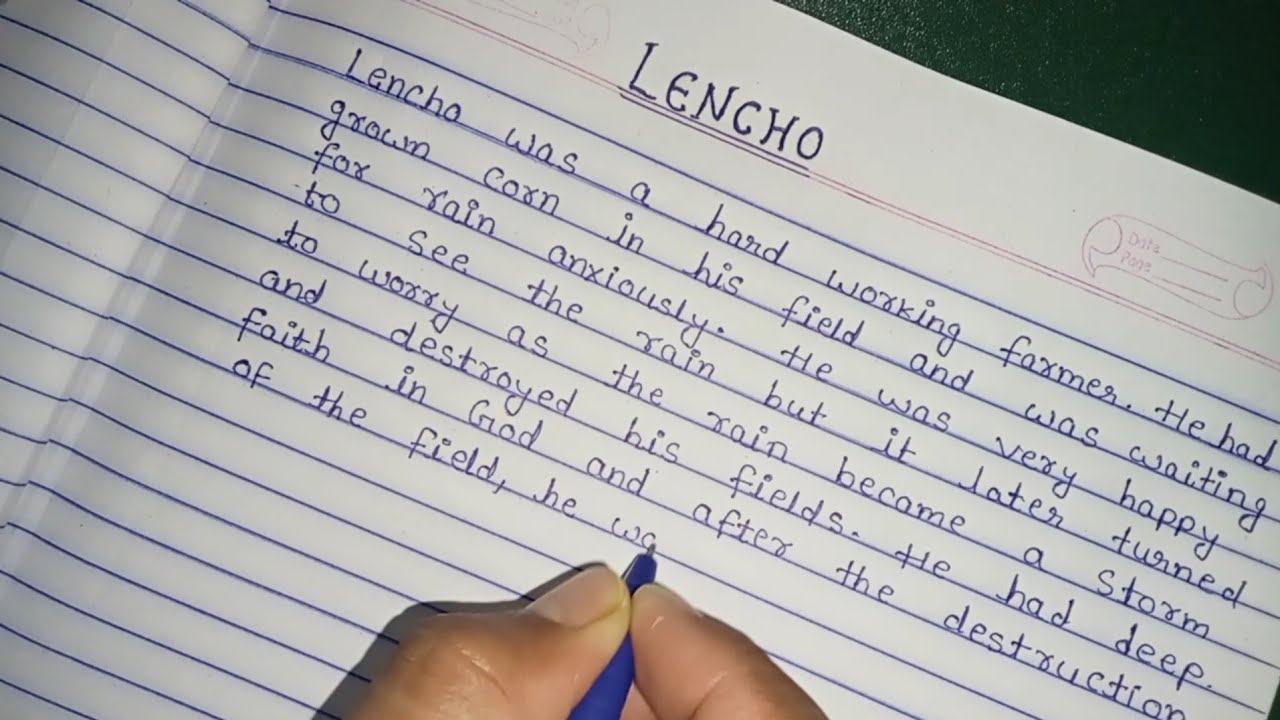 LENCHO
Date
Page
Lencho was a hard working farmer. He had
grown corn in his field and was waiting
for rain anxiously. He was very happy
to see the rain but it later turned
to worry as the rain became a storm
and destroyed his fields. He had deep.
faith in God and after the destruction
of the field, he wa